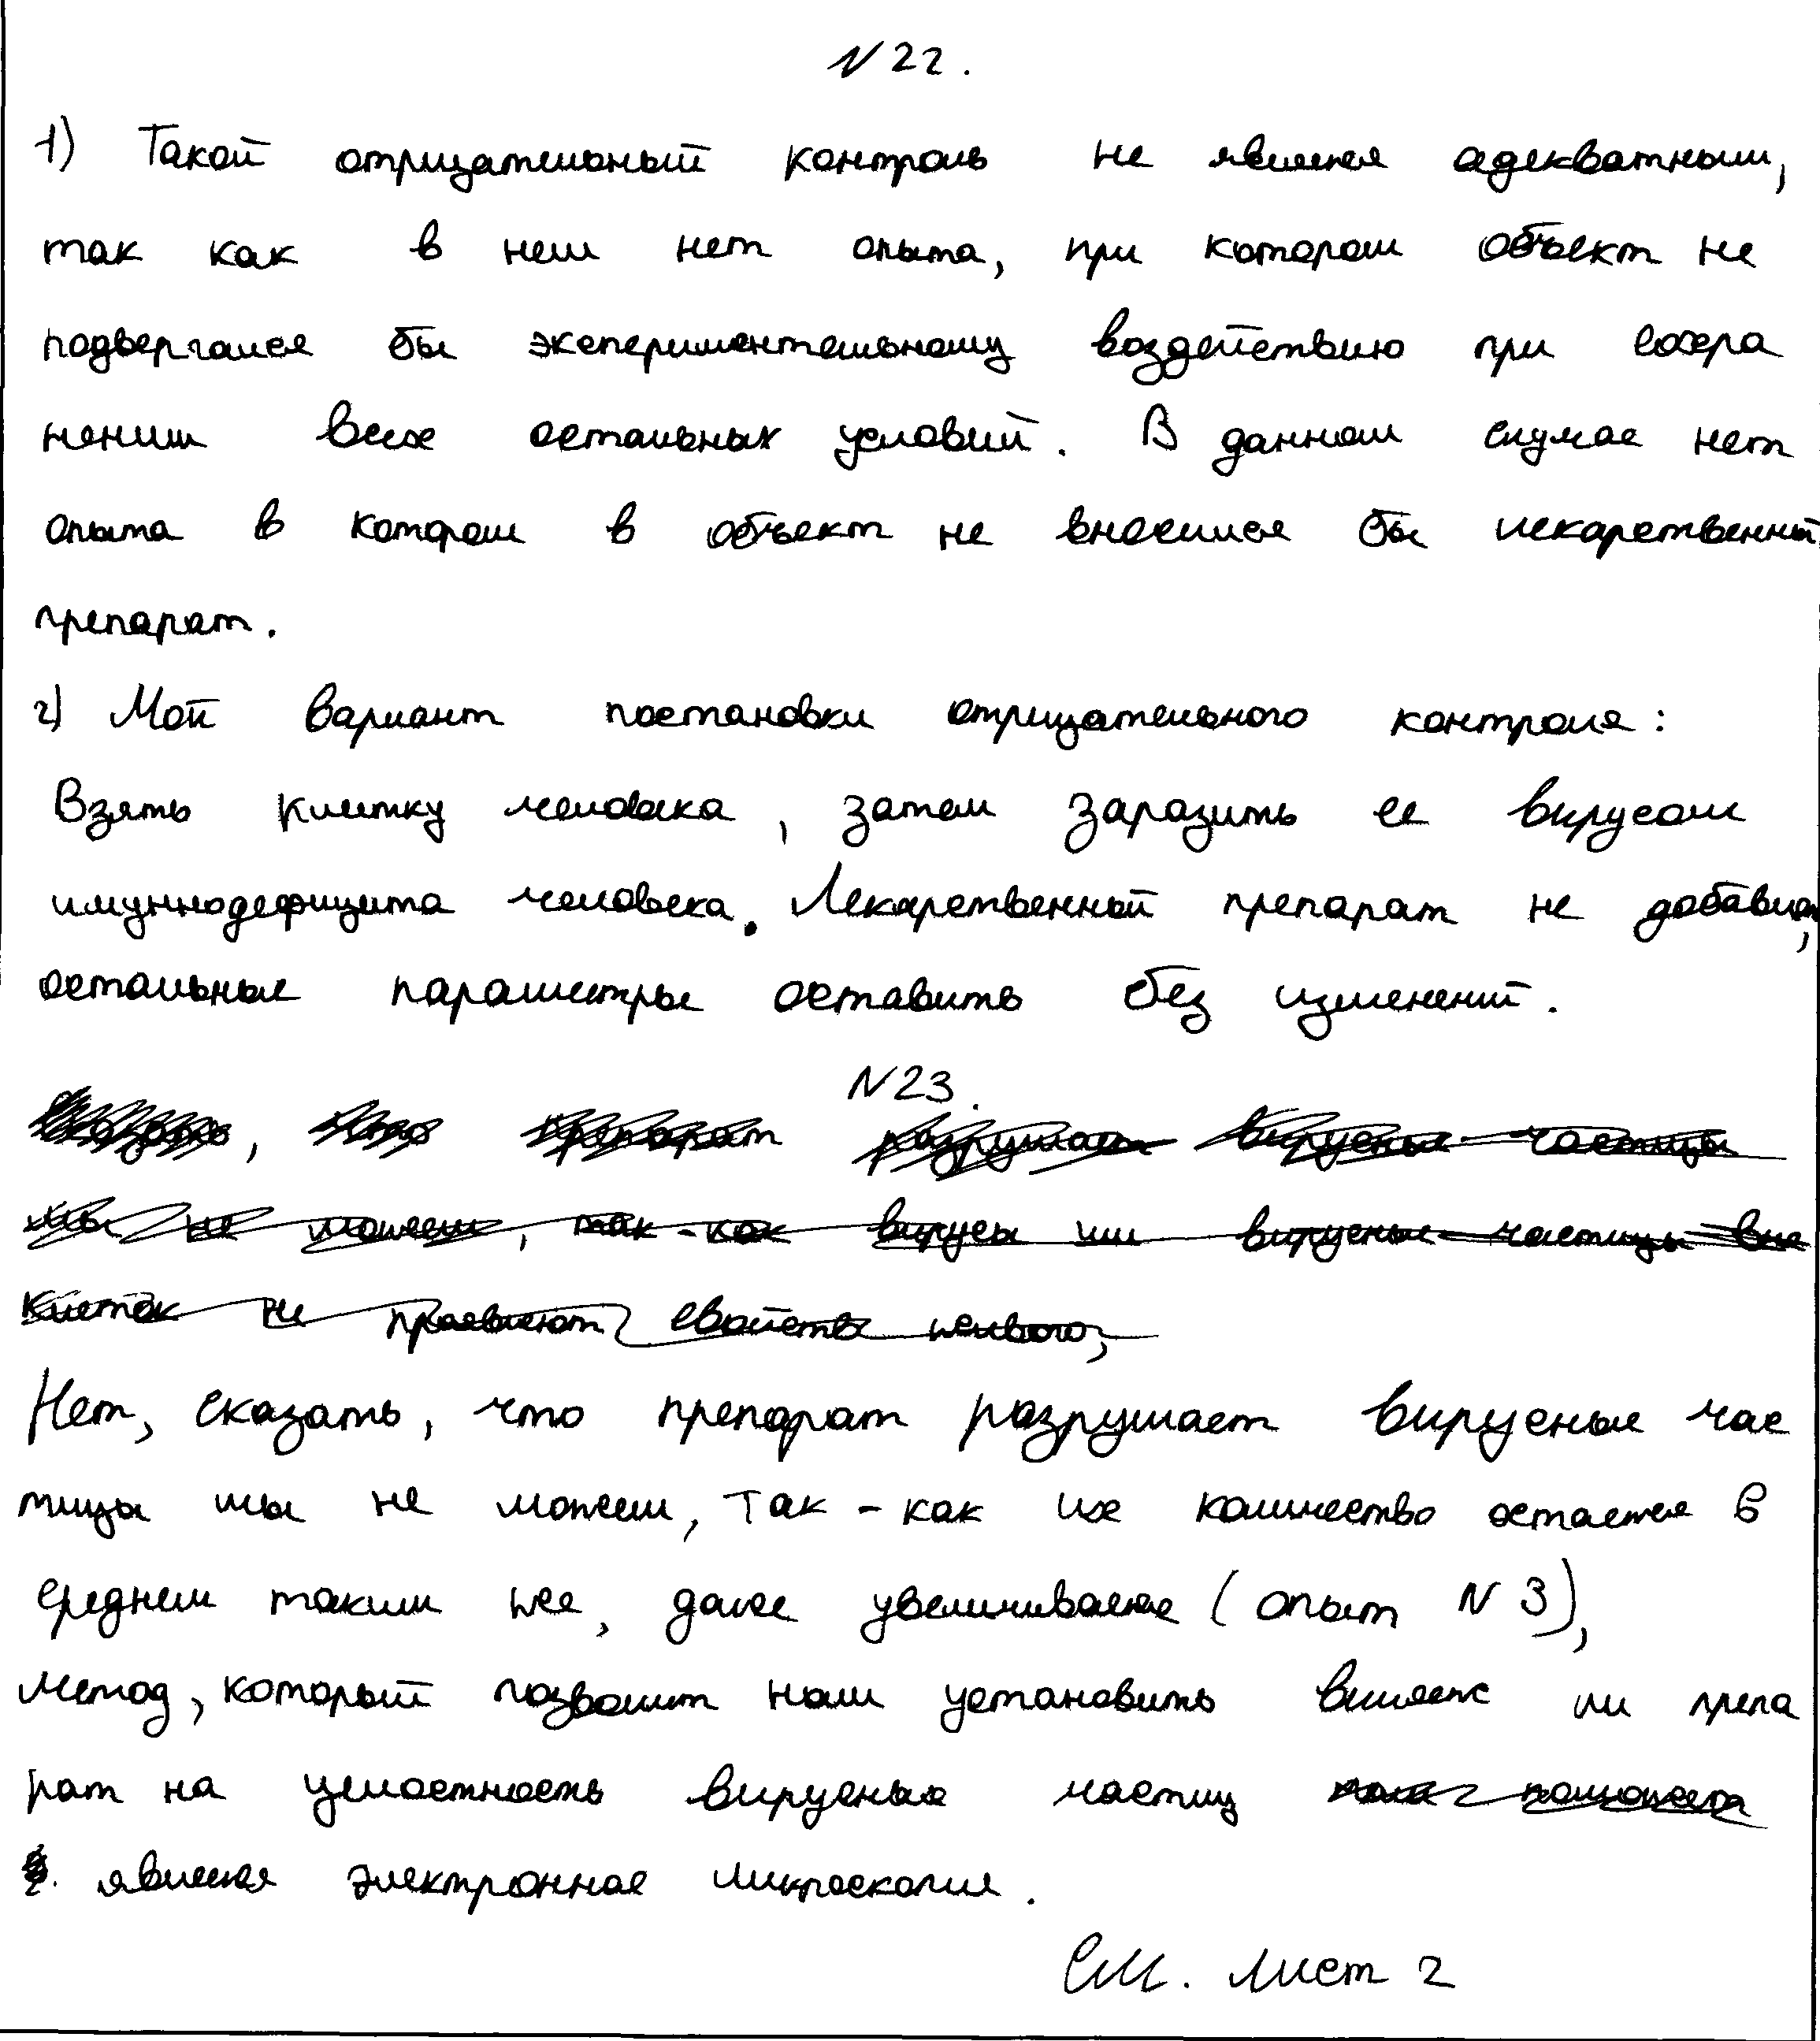 N 22.
1) Такой отрицательный контроль не является адекватным,
так как в нем нет опыта, при котором объект не
подвергался бы экспериментальному воздействию при сохра
нении всех остальных условий. В данном случае нет
опыта в котором в объект не вносился бы лекарственный
препарат.
2) Мой вариант постановки отрицательного контроля:
Взять клетку человека, затем заразить ее вирусом
имуннодефицита человека. Лекарственный препарат не добавлять,
остальные параметры оставить без изменений.
N23.
сказать, что препарат разрушает вирусные частицы
мы не можем, так-как вирусы или вирусные частицы вне
клеток не проявляют свойств живого,
Нет, сказать, что препарат разрушает вирусные час
тицы мы не можем, так-как их количество остается в
среднем таким же, даже увеличивается (опыт N 3),
метод, который позволит нам установить влияет ли препа
рат на целостность вирусных частиц
является электронная микроскопия.
См. лист 2